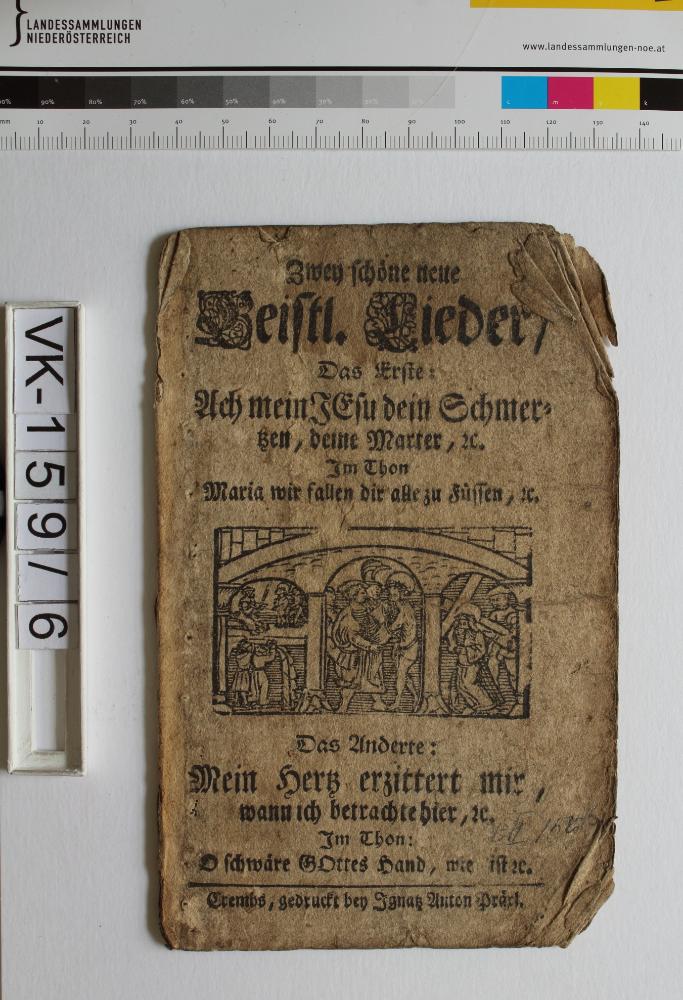 LANDESSAMMLUNGEN
NIEDERÖSTERREICH
www.landessammlungen-noe.at
90% 80% 70% 60% 50% 40% 30% 20% 10% c m y k
mm 10 20 30 40 50 60 70 80 90 100 110 120 130 140
VK-159/6
Zwey schöne neue
Geistl. Lieder/
Das Erste:
Ach mein JEsu dein Schmer-
tzen, deine Marter, ꝛc.
Im Thon
Maria wir fallen dir alle zu Füssen, ꝛc.
Das Anderte:
Mein Hertz erzittert mir,
wann ich betrachte hier, ꝛc.
Im Thon:
O schwäre GOttes Hand, wie ist ꝛc.
Crembs, gedruckt bey Ignatz Anton Präxl.